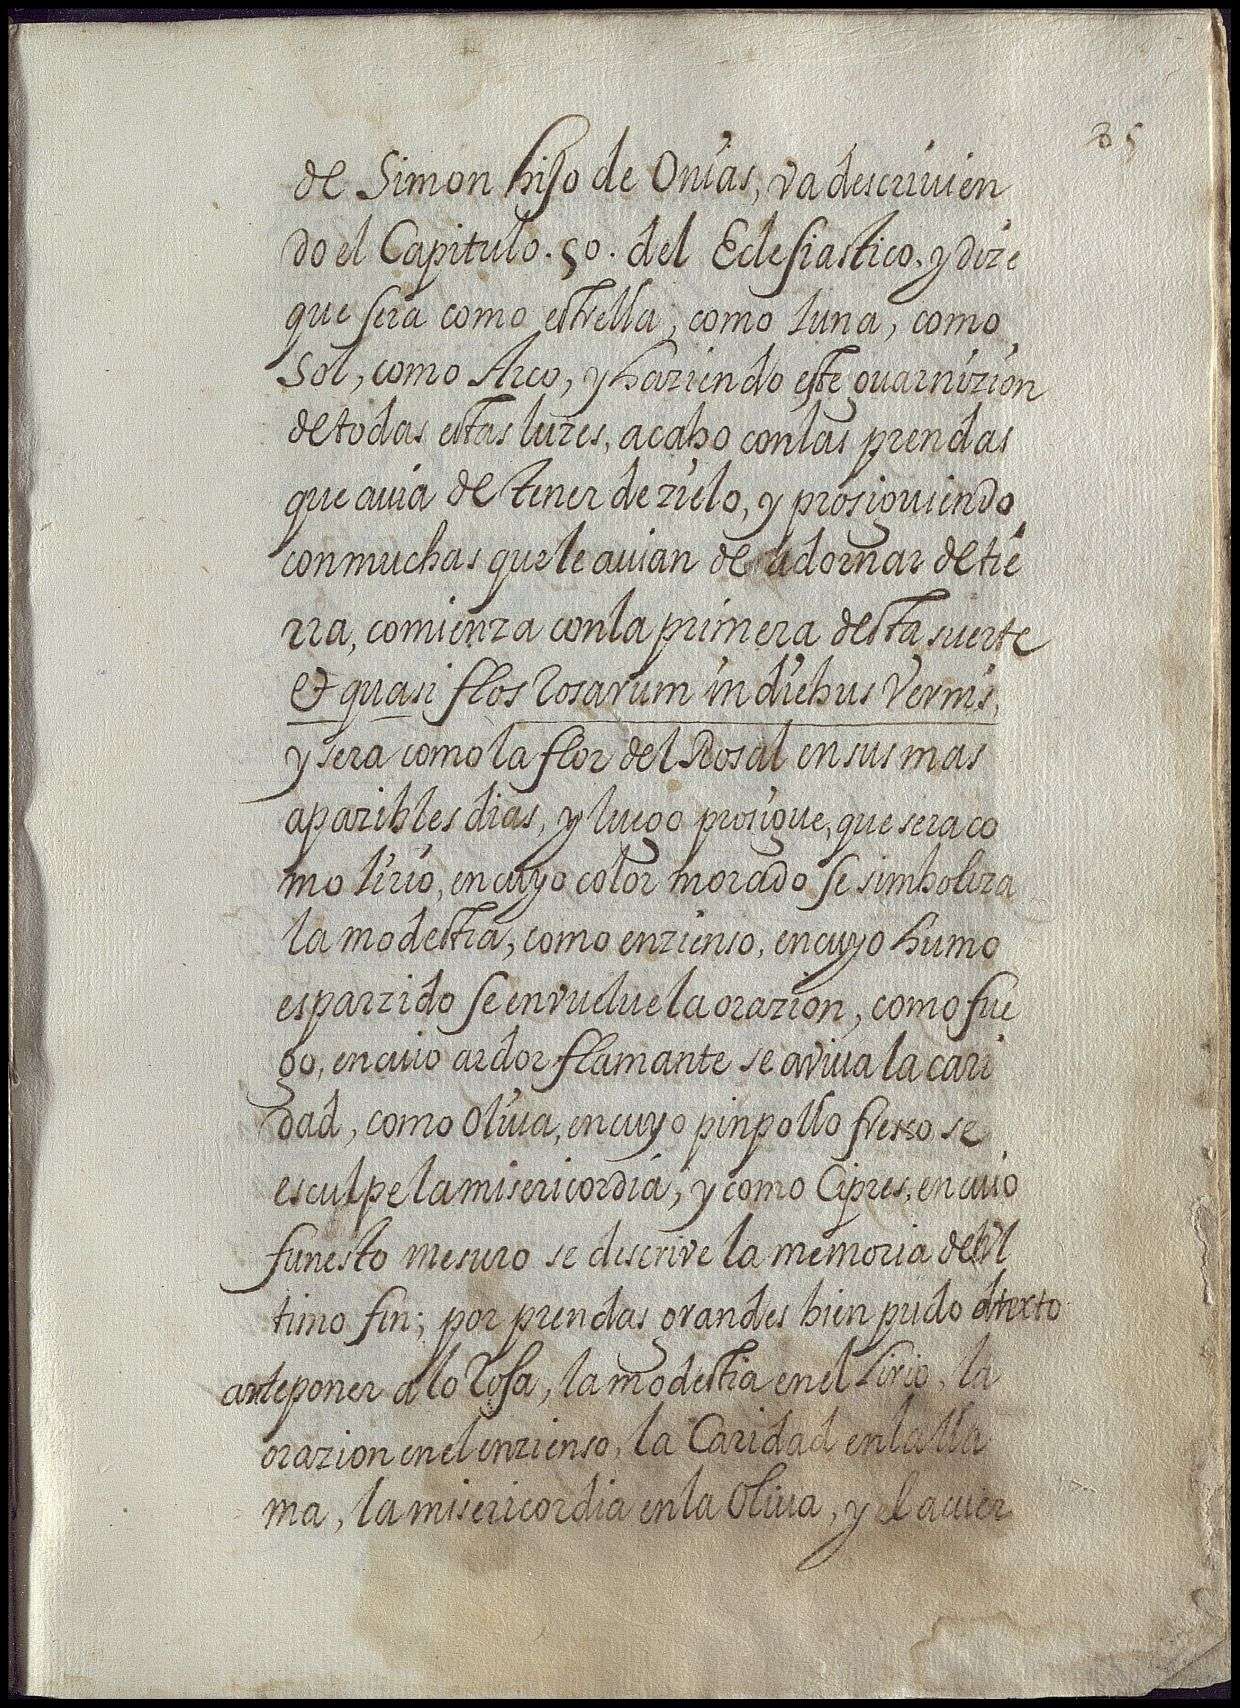 35
de Simon hijo de Onias, va descriuien
do el Capitulo. 50. del Eclesiastico, y dize
que sera como estrella, como luna, como
Sol, como Arco, y haziendo este guarnizion
de todas estas luzes, acabo con las prendas
que auia de tener de zielo, y prosiguiendo
con muchas que le auian de adornar de tie
rra, comienza con la primera desta suerte
et quasi flos rosarum in diebus Vernis,
y sera como la flor del Rosal en sus mas
apazibles dias, y luego prosigue, que sera co
mo lirio, en cuyo color morado se simboliza
la modestia, como enzienso, en cuyo humo
esparzido se envuelue la orazion, como fue
go, en cuio ardor flamante se aviua la cari
dad, como Oliua, en cuyo pinpollo fresco se
esculpe la misericordia, y como Cipres, en cuio
funesto mesuro se descrive la memoria del vl
timo fin; por prendas grandes bien pudo el texto
anteponer a lo rosa, la modestia en el Lirio, la
orazion en el enzienso, la Caridad en la lla
ma, la misericordia en la Oliua, y el acuer